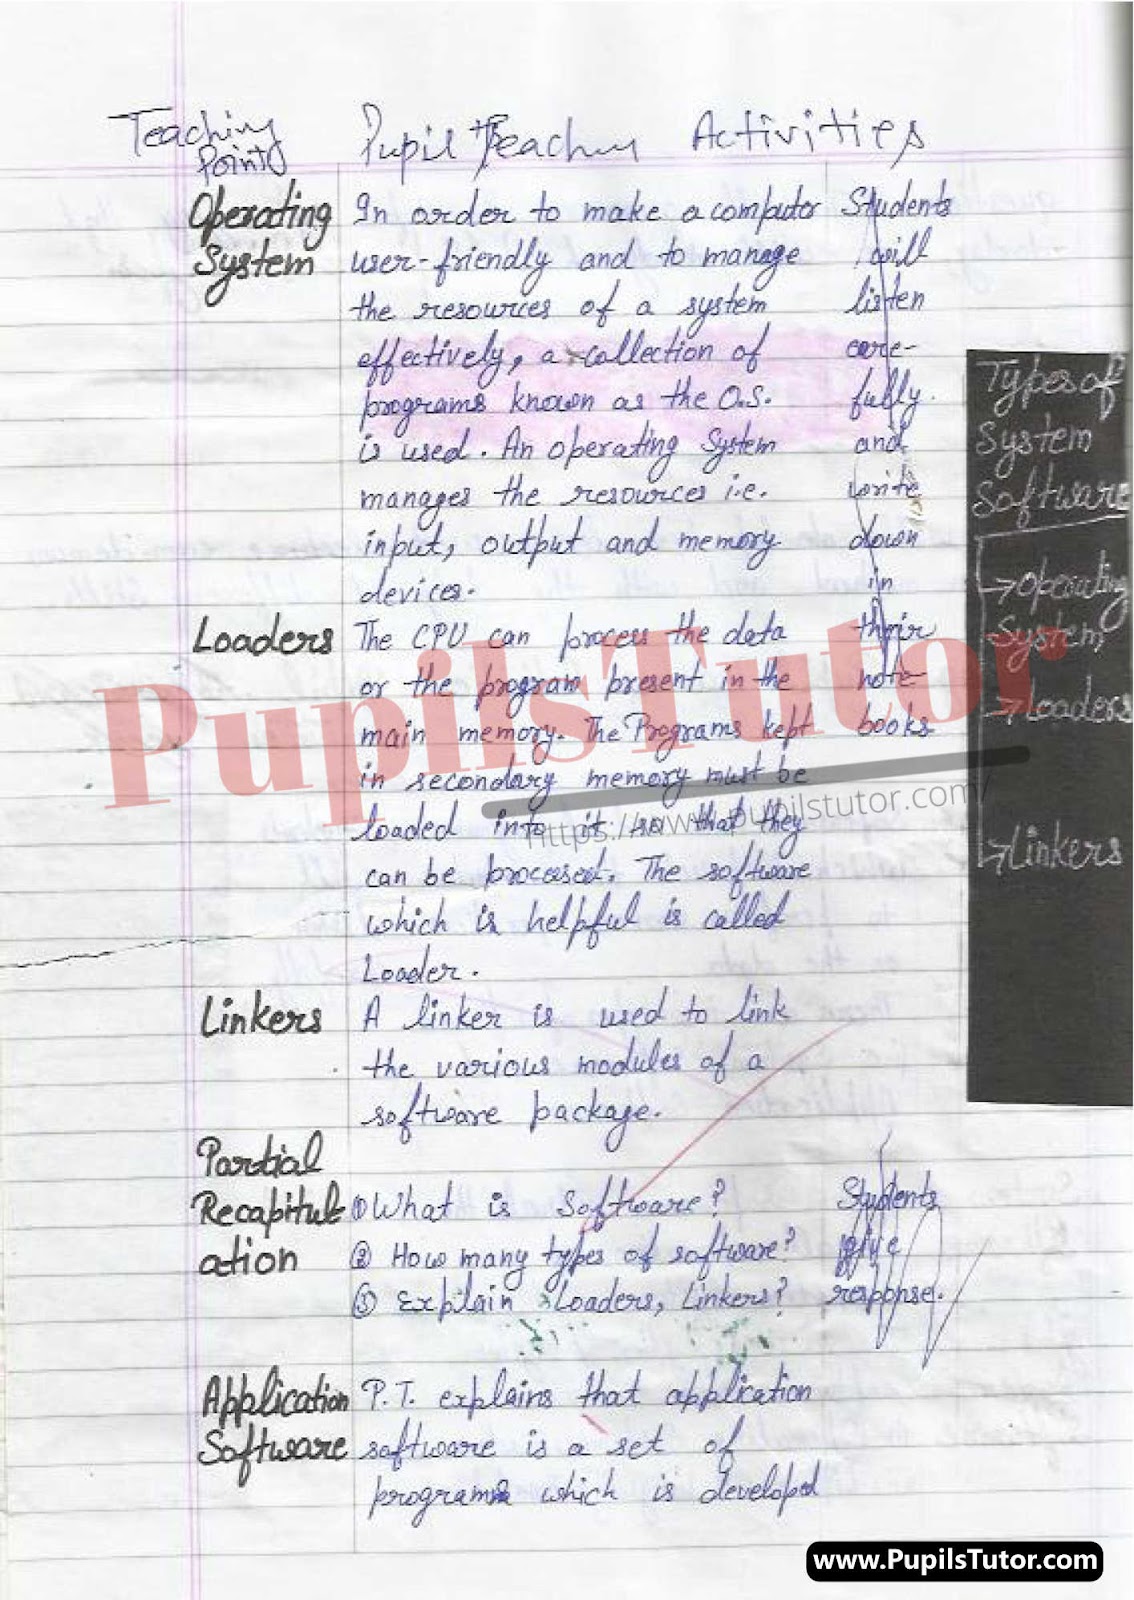 Teaching Points
Pupil Teaching Activities
Operating System
In order to make a computor
user-friendly and to manage
the resources of a system
effectively, a collection of
programs known as the O.S.
is used. An operating System
manages the resources i.e.
input, output and memory
devices.
Students
will
listen
care-
fully.
and
write
down
in
their
note
books
Loaders
The CPU can process the data
or the program present in the
main memory. The Programs kept
in secondary memory must be
loaded into it so that they
can be processed. The software
which is helpful is called
Loader.
Linkers
A linker is used to link
the various modules of a
software package.
Partial
Recapitul
ation
① What is Software?
② How many types of software?
③ Explain Loaders, Linkers?
Students
give
response.
Application
Software
P.T. explains that application
software is a set of
programs which is developed
Types of
System
Software
→ Operating
System
→ Loaders
→ Linkers
PupilsTutor
https://www.pupilstutor.com/
www.PupilsTutor.com